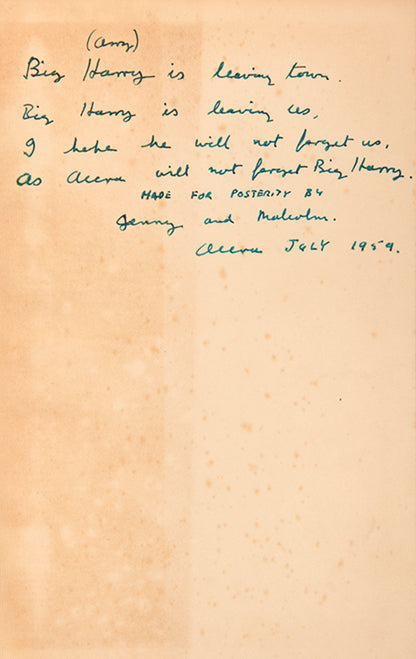 (arry)
Big Harry is leaving town.
Big Harry is leaving us,
I hehe he will not forget us,
as Accra will not forget Big Harry.
MADE FOR POSTERITY BY
Jenny and Malcolm.
Accra JULY 1959.